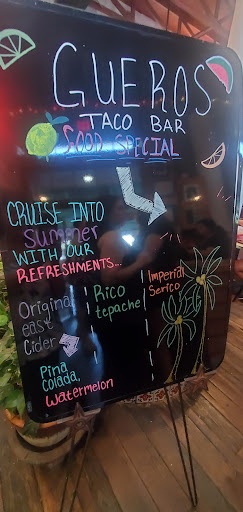 GUEROS
TACO BAR
FOOD SPECIAL
CRUISE INTO
Summer
WITH OUR
REFRESHMENTS...
Original
east
Cider
Pina
Colada,
Watermelon
Rico
tepache
Imperial
Serico